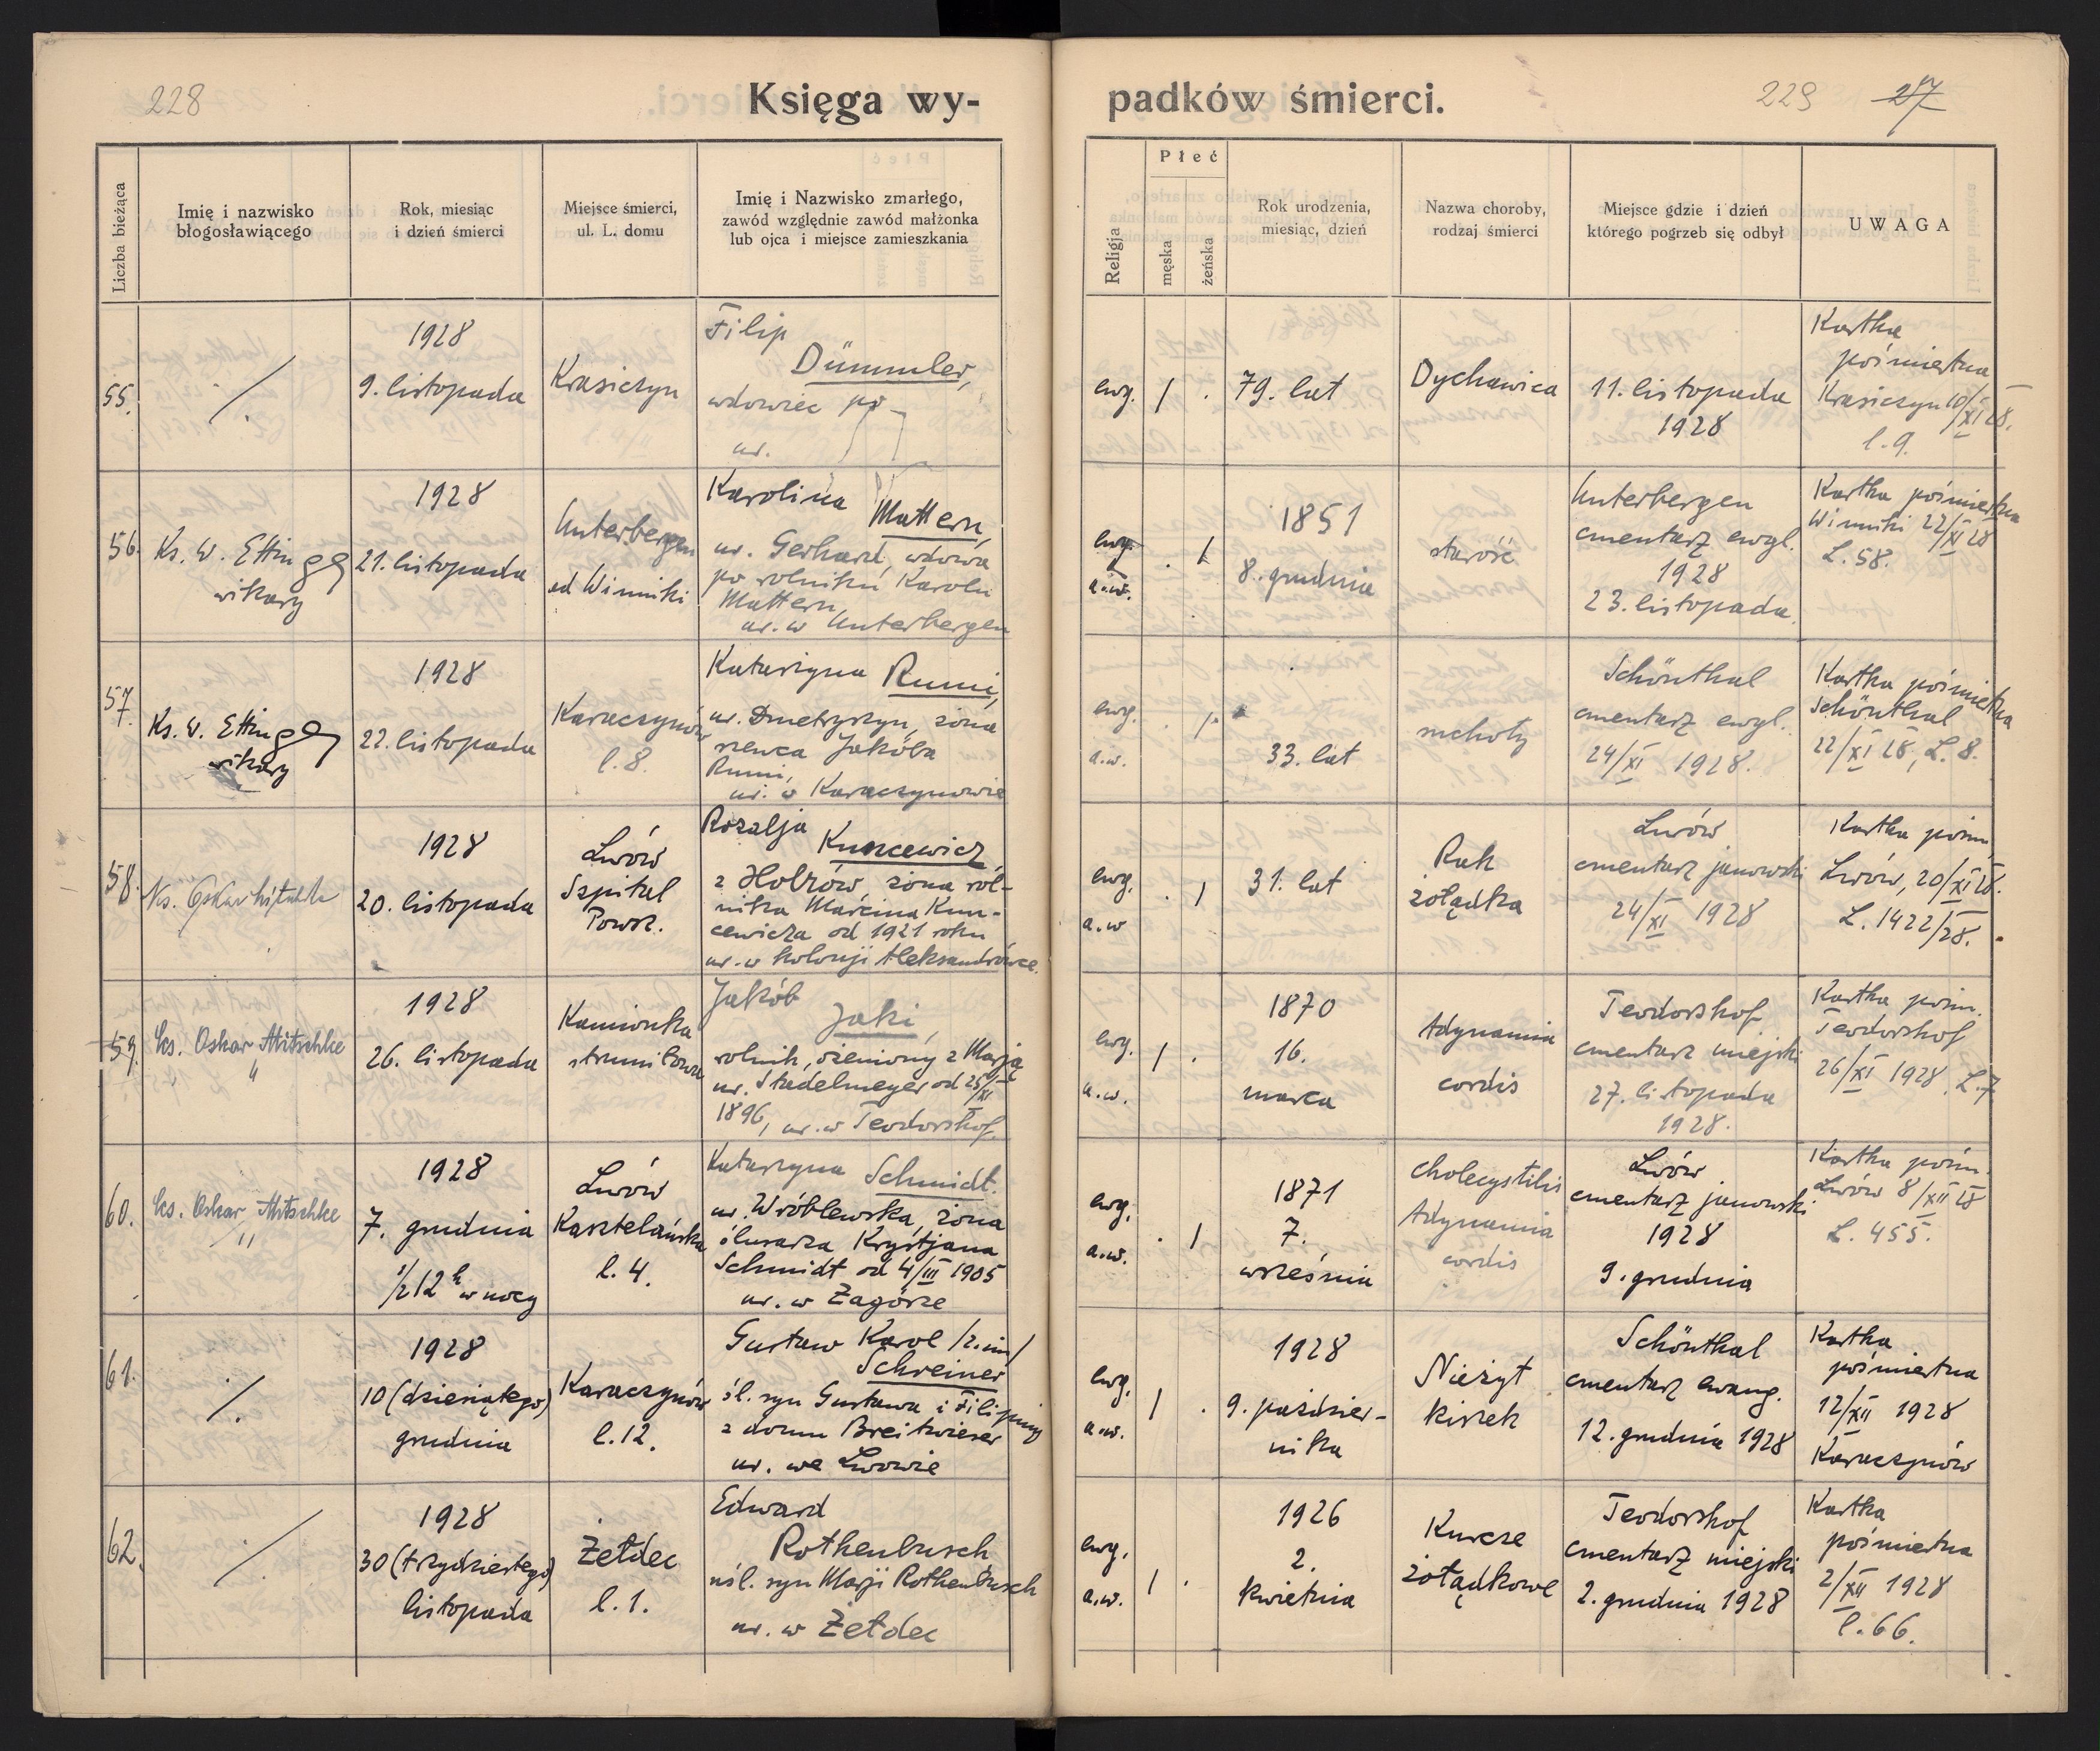 228
Księga wy-
padków śmierci.
229 27
Liczba bieżąca
Imię i nazwisko
błogosławiącego
Rok, miesiąc
i dzień śmierci
Miejsce śmierci,
ul. L. domu
Imię i Nazwisko zmarłego,
zawód względnie zawód małżonka
lub ojca i miejsce zamieszkania
Religja
Płeć
męska
żeńska
Rok urodzenia,
miesiąc, dzień
Nazwa choroby,
rodzaj śmierci
Miejsce gdzie i dzień
którego pogrzeb się odbył
UWAGA
55.
1928
9. listopada
Krasiczyn
Filip
Dümmler,
wdowiec po
ur.
ewg.
79. lat
Dychawica
11. listopada
1928
Kartka
pośmiertna
Krasiczyn 10/XI 28.
l. 9.
56.
Ks. W. Ettinger
wikary
1928
21. listopada
Unterbergen
ad Winniki
Karolina
Mattern,
ur. Gerhard, wdowa
po rolniku Karolu
Mattern,
ur. w Unterbergen
ewg.
a.w.
1851
8. grudnia
starość
Unterbergen
cmentarz ewgl.
1928
23. listopada.
Kartka pośmiertna
Winniki 22/XI 28
L. 58.
57.
Ks. W. Ettinger
wikary
1928
22. listopada
Karaczynów
l. 8.
Katarzyna Rumi,
ur. Dmetryszyn, żona
szewca Jakóba
Rumi,
ur. w Karaczynowie
ewg.
a.w.
33. lat
suchoty
Schönthal
cmentarz ewgl.
24/XI 1928.
Kartka pośmiertna
Schönthal
22/XI 28, L. 8.
58.
Ks. Oskar
1928
20. listopada
Lwów
Szpital
Powsz.
Rozalja
Kuncewicz
z Holzów, żona rol-
nika Marcina Kun-
cewicza od 1921 roku
ur. w kolonji Aleksandrówce.
ewg.
a.w
31. lat
Rak
żołądka
Lwów
cmentarz janowski
24/XI 1928
Kartka pośm.
Lwów, 20/XI 28.
L. 1422/28.
59.
ks. Oskar Mitschke
"
1928
26. listopada
Kamionka
strumiłowa
Jakób
Jaki,
rolnik, ożeniony z Marją
ur. Stadelmeyer od 25/XI
1896, ur. w Teodorshof.
ewg.
a.w.
1870
16.
marca
Adynamia
cordis
Teodorshof
cmentarz miejski
27. listopada
1928.
Kartka pośm.
Teodorshof
26/XI 1928. L. 7
60.
ks. Oskar Mitschke
"
1928
7. grudnia
1/2 12 h w nocy
Lwów
Kasztelańska
l. 4.
Katarzyna Schmidt.
ur. Wróblewska, żona
ślusarza Krystjana
Schmidt od 4/III 1905
ur. w Zagórze
ewg.
a.w.
1871
7.
września
cholecystitis
Adynamia
cordis
Lwów
cmentarz janowski
1928
9. grudnia
Kartka pośm.
Lwów 8/XII 28
L. 455.
61.
1928
10 (dziesiątego)
grudnia
Karaczynów
l. 12.
Gustaw Karol /2. im/
Schreiner
śl. syn Gustawa i Filipiny
z domu Breitwieser
ur. we Lwowie
ewg.
a.w.
1928
9. paździer-
nika
Nieżyt
kiszek
Schönthal
cmentarz ewang.
12. grudnia 1928
Kartka
pośmiertna
12/XII 1928
Karaczynów
62.
1928
30 (trzydziestego)
listopada
Żełdec
l. 1.
Edward
Rothenbusch
nśl. syn Marji Rothenbusch
ur. w Żełdec
ewg.
a.w.
1926
2.
kwietnia
Kurcze
żołądkowe
Teodorshof
cmentarz miejski
2. grudnia 1928
Kartka
pośmiertna
2/XII 1928
l. 66.